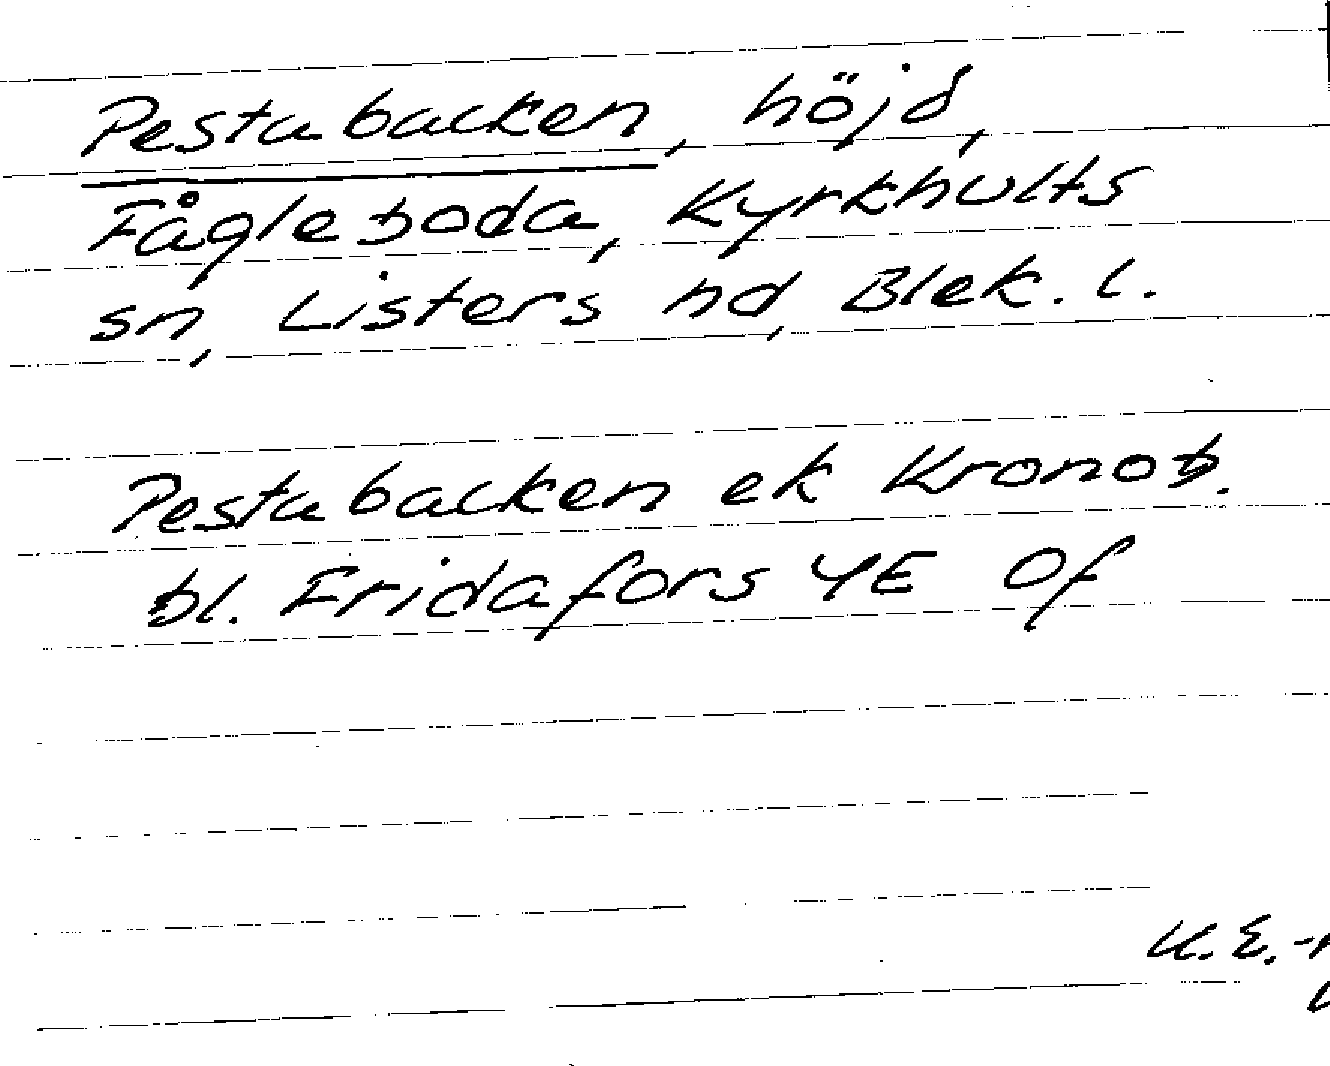 Pestabacken, höjd,
Fågleboda, Kyrkhults
sn, Listers hd, Blek. l.
Pestabacken ek Kronob.
bl. Fridafors 4E Of
U.E.-